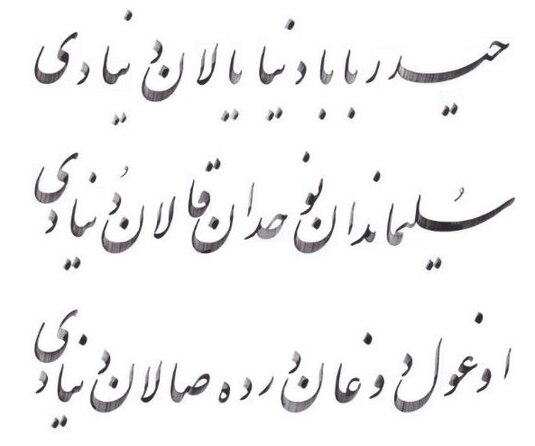 حیدربابا دنیا یالان دنیادی
سلیماندان نوحدان قالان دنیادی
اوغول دوغان درده صالان دنیادی